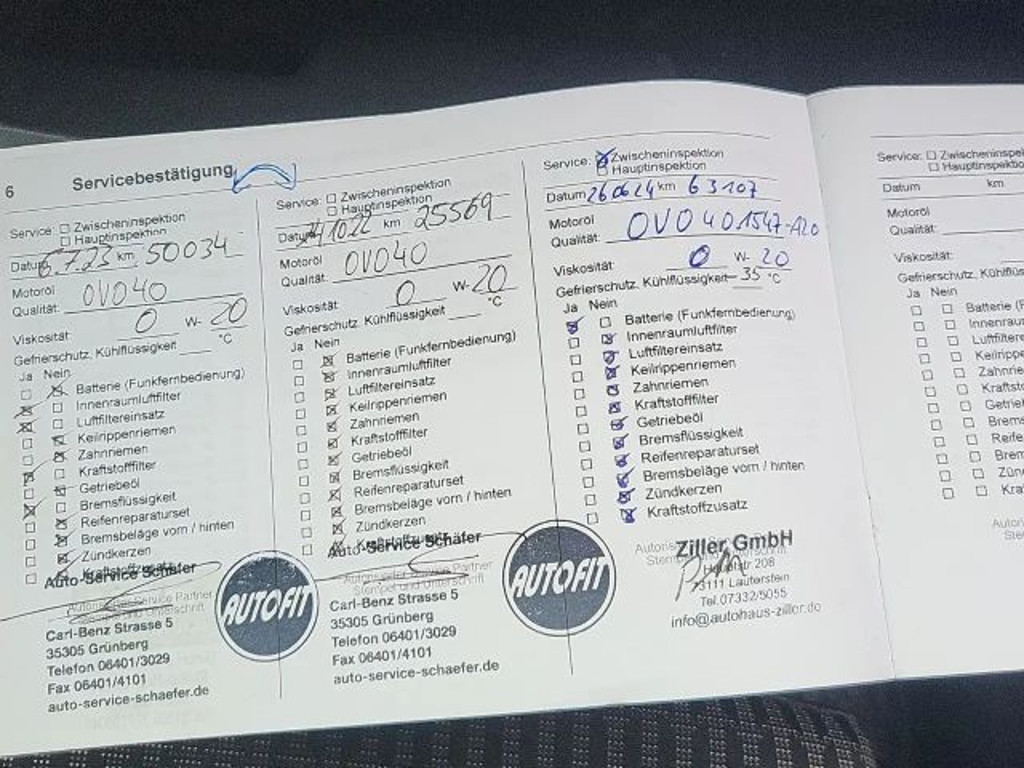 6 Servicebestätigung
Service: Zwischeninspektion
Hauptinspektion
Datum 6.7.23 km 50034
Motoröl
Qualität: OVO40
Viskosität: 0 W- 20
Gefrierschutz. Kühlflüssigkeit °C
Ja Nein
Batterie (Funkfernbedienung)
Innenraumluftfilter
Luftfiltereinsatz
Keilrippenriemen
Zahnriemen
Kraftstofffilter
Getriebeöl
Bremsflüssigkeit
Reifenreparaturset
Bremsbeläge vorn / hinten
Zündkerzen
Kraftstoffzusatz
Auto-Service Schäfer
Autorisierter Service Partner
Stempel und Unterschrift
AUTOFIT
Carl-Benz Strasse 5
35305 Grünberg
Telefon 06401/3029
Fax 06401/4101
auto-service-schaefer.de
Service: Zwischeninspektion
Hauptinspektion
Datum 10.22 km 25569
Motoröl
Qualität: OVO40
Viskosität: 0 W- 20
Gefrierschutz. Kühlflüssigkeit °C
Ja Nein
Batterie (Funkfernbedienung)
Innenraumluftfilter
Luftfiltereinsatz
Keilrippenriemen
Zahnriemen
Kraftstofffilter
Getriebeöl
Bremsflüssigkeit
Reifenreparaturset
Bremsbeläge vorn / hinten
Zündkerzen
Kraftstoffzusatz
Auto-Service Schäfer
Autorisierter Service Partner
Stempel und Unterschrift
AUTOFIT
Carl-Benz Strasse 5
35305 Grünberg
Telefon 06401/3029
Fax 06401/4101
auto-service-schaefer.de
Service: Zwischeninspektion
Hauptinspektion
Datum 260624 km 63107
Motoröl
Qualität: OVO401547-A20
Viskosität: 0 W- 20
Gefrierschutz. Kühlflüssigkeit -35 °C
Ja Nein
Batterie (Funkfernbedienung)
Innenraumluftfilter
Luftfiltereinsatz
Keilrippenriemen
Zahnriemen
Kraftstofffilter
Getriebeöl
Bremsflüssigkeit
Reifenreparaturset
Bremsbeläge vorn / hinten
Zündkerzen
Kraftstoffzusatz
Ziller GmbH
Hauptstr. 208
73111 Lauterstein
Tel.07332/5055
info@autohaus-ziller.de
Service: Zwischeninspekti
Hauptinspektio
Datum km
Motoröl
Qualität:
Viskosität:
Gefrierschutz. Kühlflüssig
Ja Nein
Batterie (F
Innenrau
Luftfiltere
Keilrippe
Zahnrie
Kraftst
Getrie
Brems
Reife
Bren
Zün
Kra